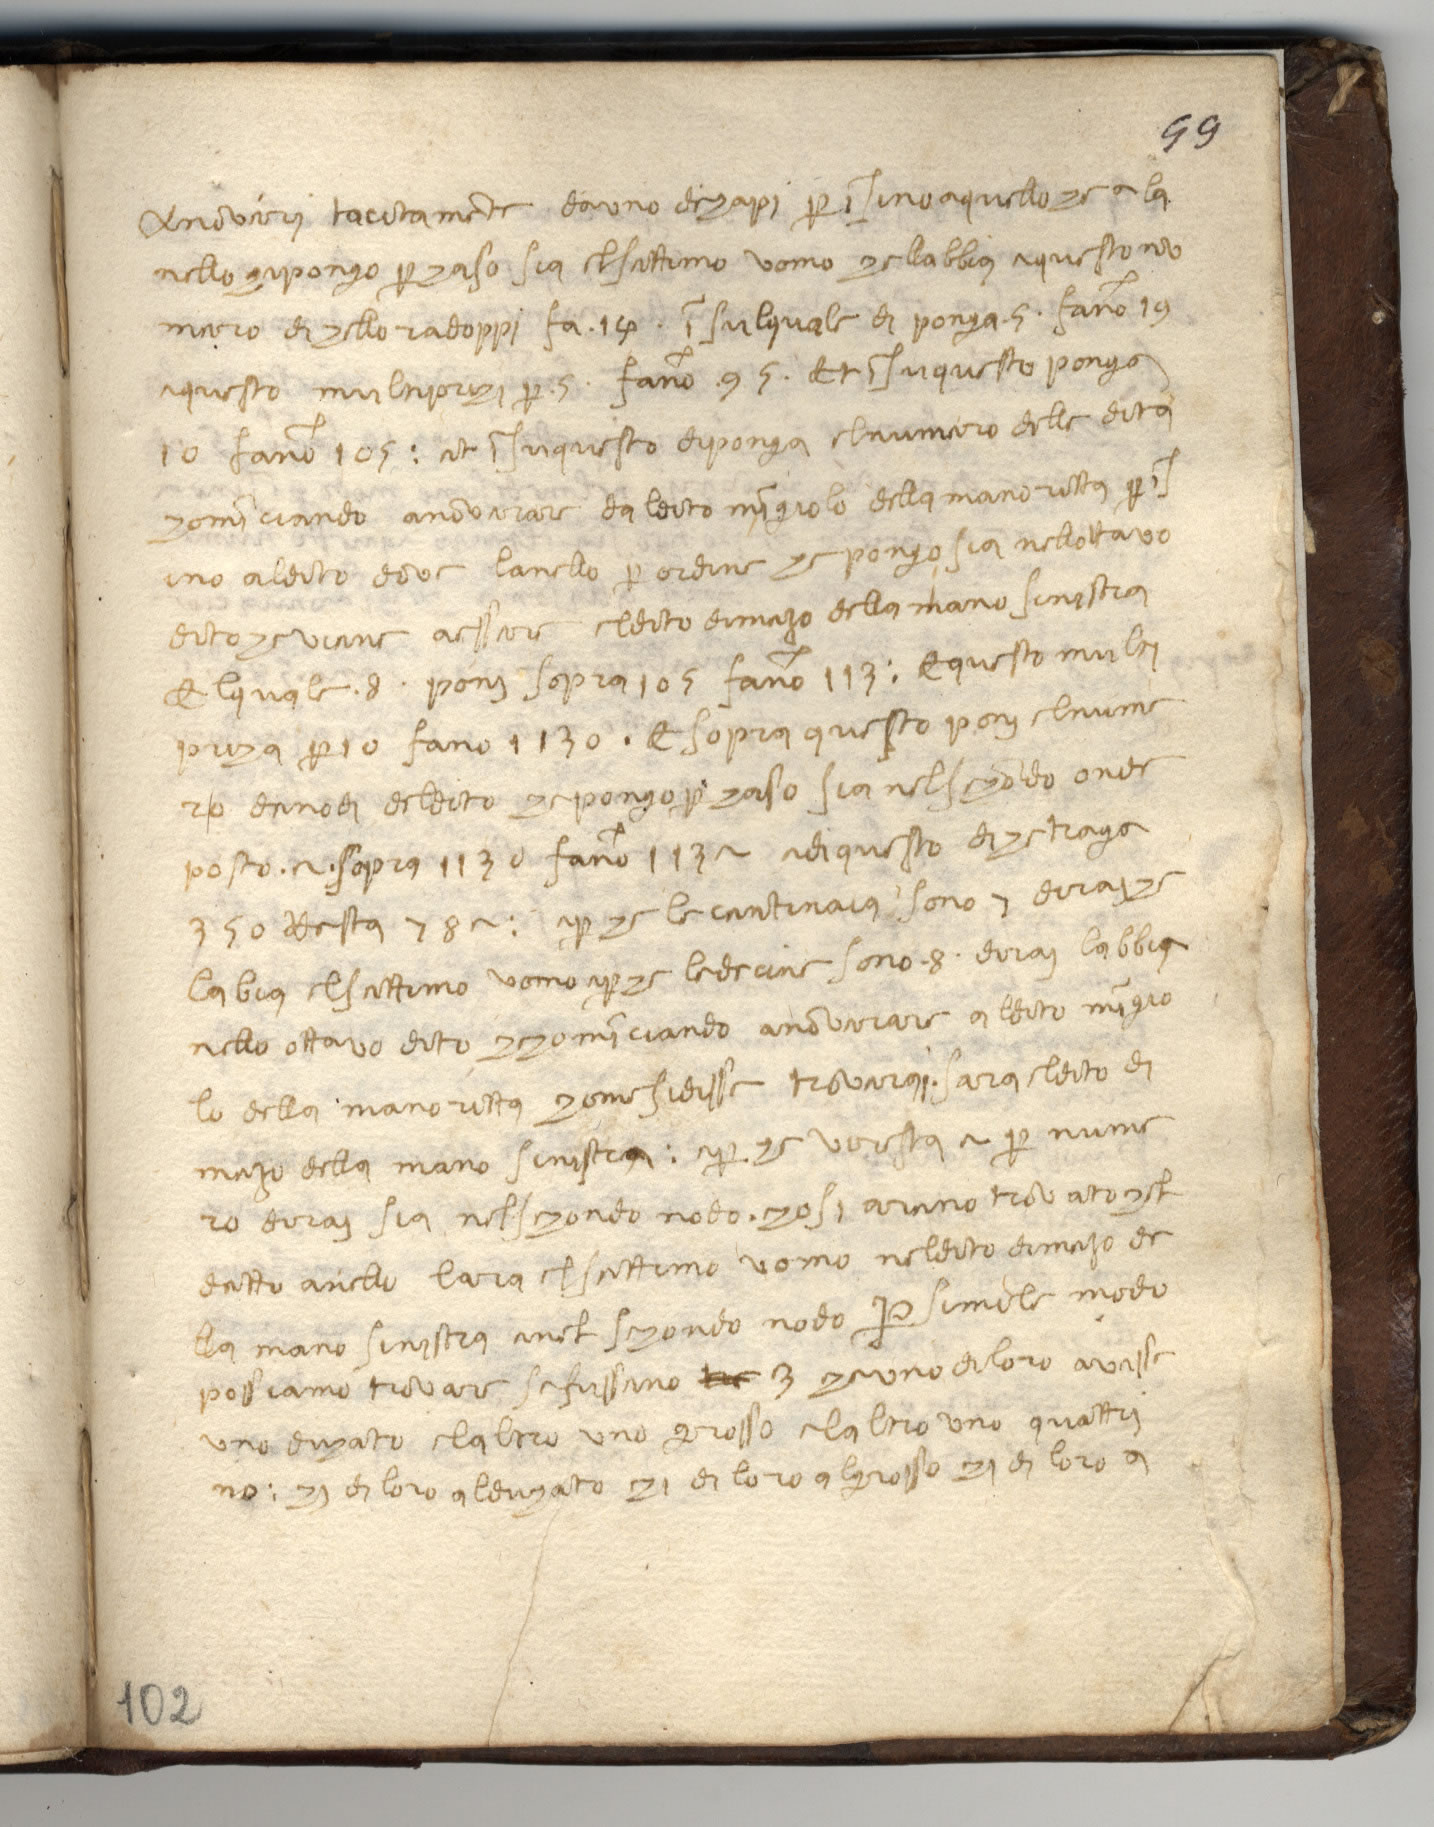 99
Anoveri tacitamēte da uno de capi ꝑ ī sino aquello ce a la
nello gipongo ꝑ caso sia el settimo uomo cellabbia aquesto nu
mero di cello radoppi fa . 14 . ī sulquale di ponga . 5 . fanō 19
aquesto multiprici ꝑ . 5 . fanō . 95 . Et ī suquesto ponga
10 fanō 105 : et ī suquesto diponga elnumero delle dita
comīciando anōverare dal dito mīgiolo della mano ritta ꝑ īs
ino aldito dove lanello ꝑ ordine ce pongo sia nellottavo
dito ce viene aessere eldito dimezo della mano sinistra
Elquale . 8 . poni sopra 105 fanō 113 : Equesto multi
prica ꝑ 10 fano 1130 . E sopra questo poni elnume
ro denodi deldito ce pongo ꝑ caso sia nelsecōdo onde
posto . 2 . sopra 1130 fanō 1132 edi questo di ce traga
350 Resta 782 : eꝑ ce le centinaia sono 7 dirai ce
labia elsettimo uomo eꝑ ce ledecine sono . 8 . dirai labbia
nello ottavo dito ce comīciando anōverare aldito mīgio
lo della mano ritta come sidisse trōverai . sara eldito di
mezo della mano sinistra : eꝑ ce vi resta 2 ꝑ nume
ro dirai sia nelsecondo nodo . ecosi areno trōvato cel
detto anello lara elsettimo uomo neldito dimezo de
lla mano sinistra enel secondo nodo ꝑ simile modo
possiamo trovare sefussino 3 ce uno diloro avesse
uno ducato elaltro uno grosso elaltro uno quattri
no : ci di loro alducato ci di loro algrosso ci di loro a
102